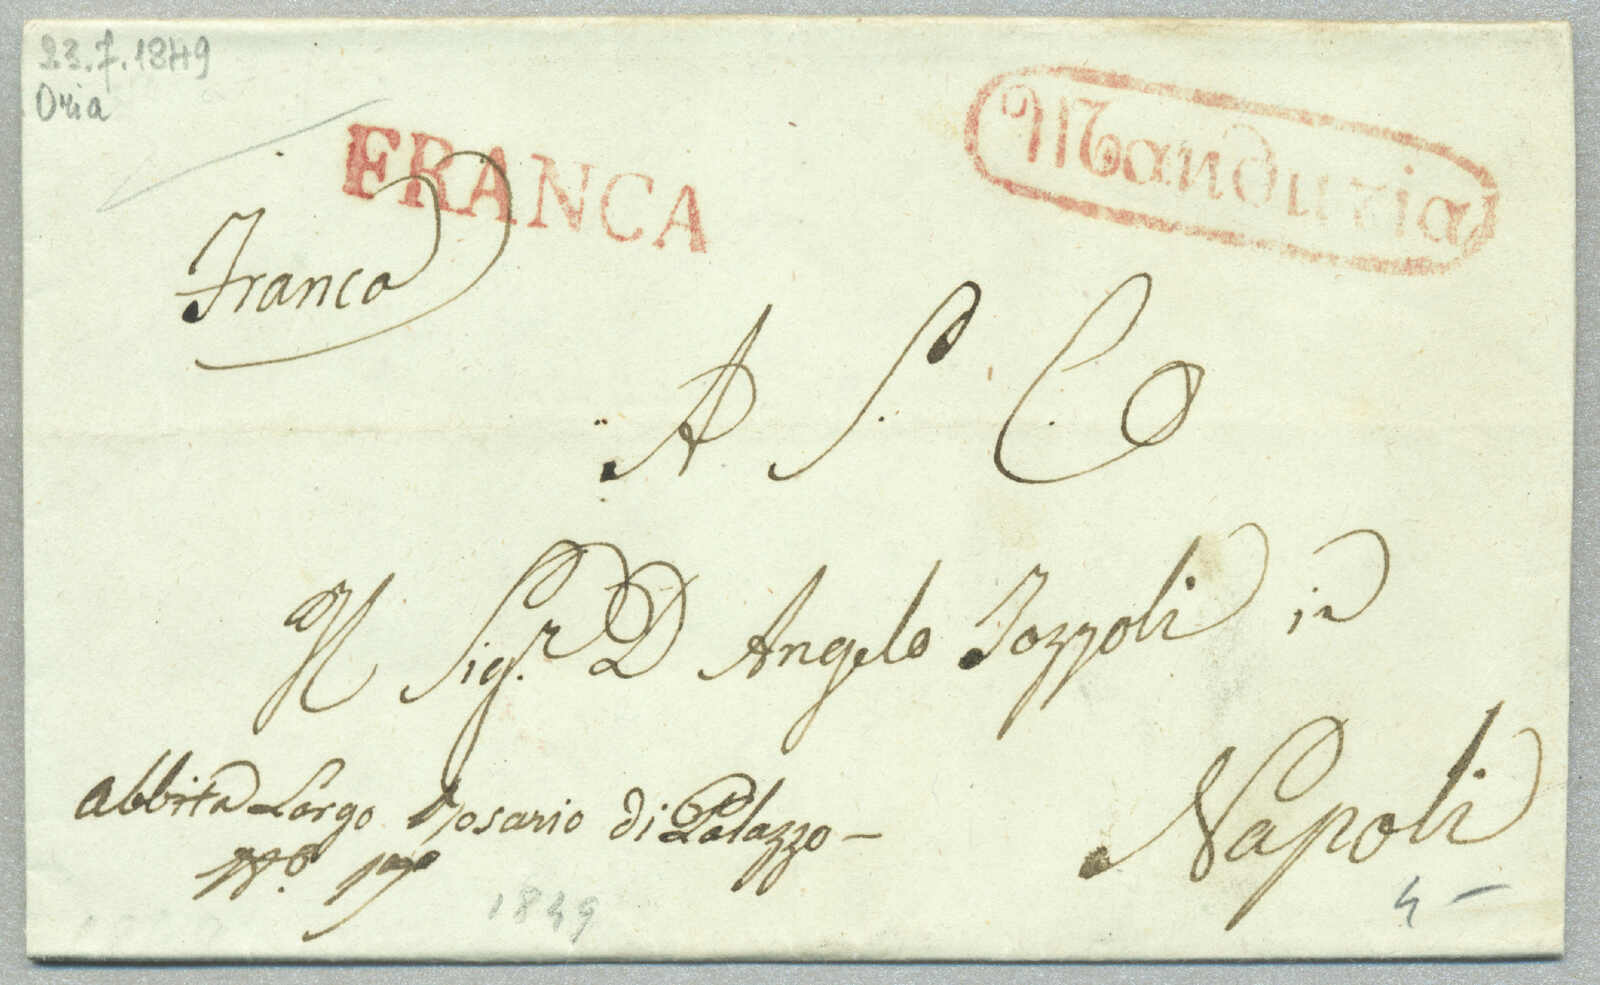 23.7.1849
Oria
FRANCA
Manduria
Franca
A S. C.
Al Sig.r D Angelo Tozzoli in
Napoli
abbita Largo Rosario di Palazzo –
N.o
1849
4 –